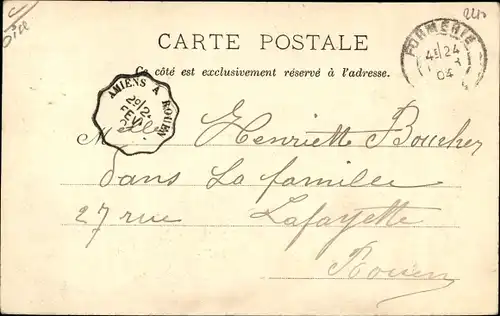 Oise
CARTE POSTALE
Ce côté est exclusivement réservé à l'adresse.
FORMERIE
24
04
AMIENS A ROUEN
Melle Henriette Boucher
dans La famille
27 rue Lafayette
Rouen